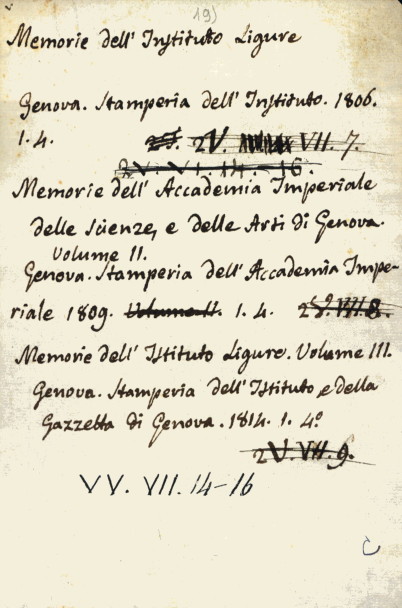 19)
Memorie dell' Instituto Ligure
Genova. Stamperia dell' Instituto. 1806.
1. 4. 2V. VII. 7.
2V. VI. 14. 16.
Memorie dell' Accademia Imperiale
delle Scienze, e delle Arti di Genova.
Volume II.
Genova. Stamperia dell' Accademia Impe-
riale 1809. Volume II. 1. 4. VII. 8.
Memorie dell' Istituto Ligure. Volume III.
Genova. Stamperia dell' Istituto e della
Gazzetta di Genova. 1814. 1. 4º
2V. VII. 9.
VV. VII. 14-16
C